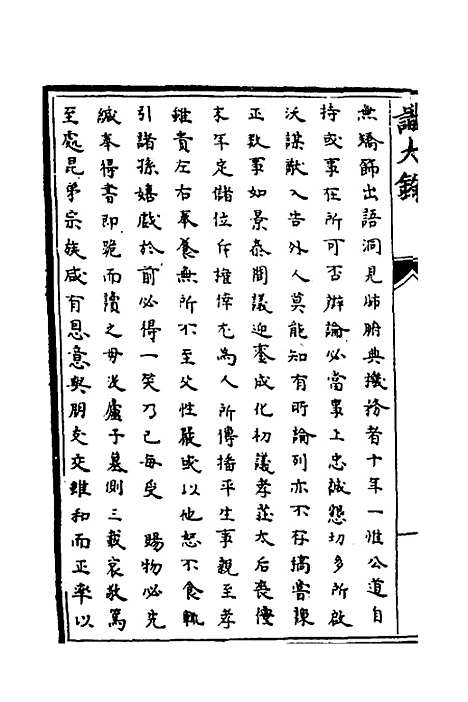 識大錄
無矯飾出語洞見肺腑典機務者十年一惟公道自
持或事在所可否辨論必當事上忠誠懇切多所啟
沃謀猷入告外人莫能知有時論列亦不存稿嘗諫
正致事如景泰間議迎鑾成化初議孝莊太后喪僾
末年定儲位斥權倖尤為人所傳播平生事親至孝
雖貴左右奉養無所不至父性嚴或以他怒不食輒
引諸孫嬉戲於前必得一笑乃已每受 賜物必先
緘奉得書即跪而讀之毋没廬子墓側三載哀敬篤
至處昆弟宗族咸有恩意與朋友交雖和而正率以
一